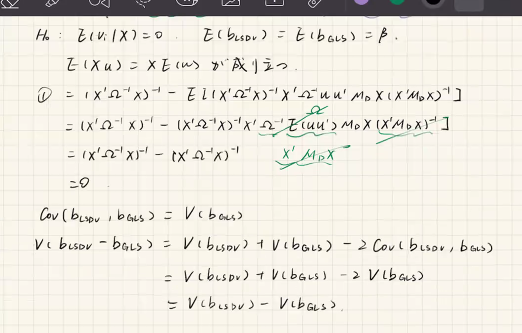 H₀ : E(vᵢ|X)=0   E(b_LSDV) = E(b_GLS) = β.
E(Xu) = X E(u) が成り立つ
① = (X'Ω⁻¹X)⁻¹ - E[(X'Ω⁻¹X)⁻¹X'Ω⁻¹uu' M_D X(X'M_D X)⁻¹]
Ω
= (X'Ω⁻¹X)⁻¹ - (X'Ω⁻¹X)⁻¹X'Ω⁻¹E(uu') M_D X(X'M_D X)⁻¹]
= (X'Ω⁻¹X)⁻¹ - (X'Ω⁻¹X)⁻¹   X'M_D X
=0
Cov(b_LSDV, b_GLS) = V(b_GLS)
V(b_LSDV - b_GLS) = V(b_LSDV) + V(b_GLS) - 2 Cov(b_LSDV, b_GLS)
= V(b_LSDV) + V(b_GLS) - 2 V(b_GLS)
= V(b_LSDV) - V(b_GLS).